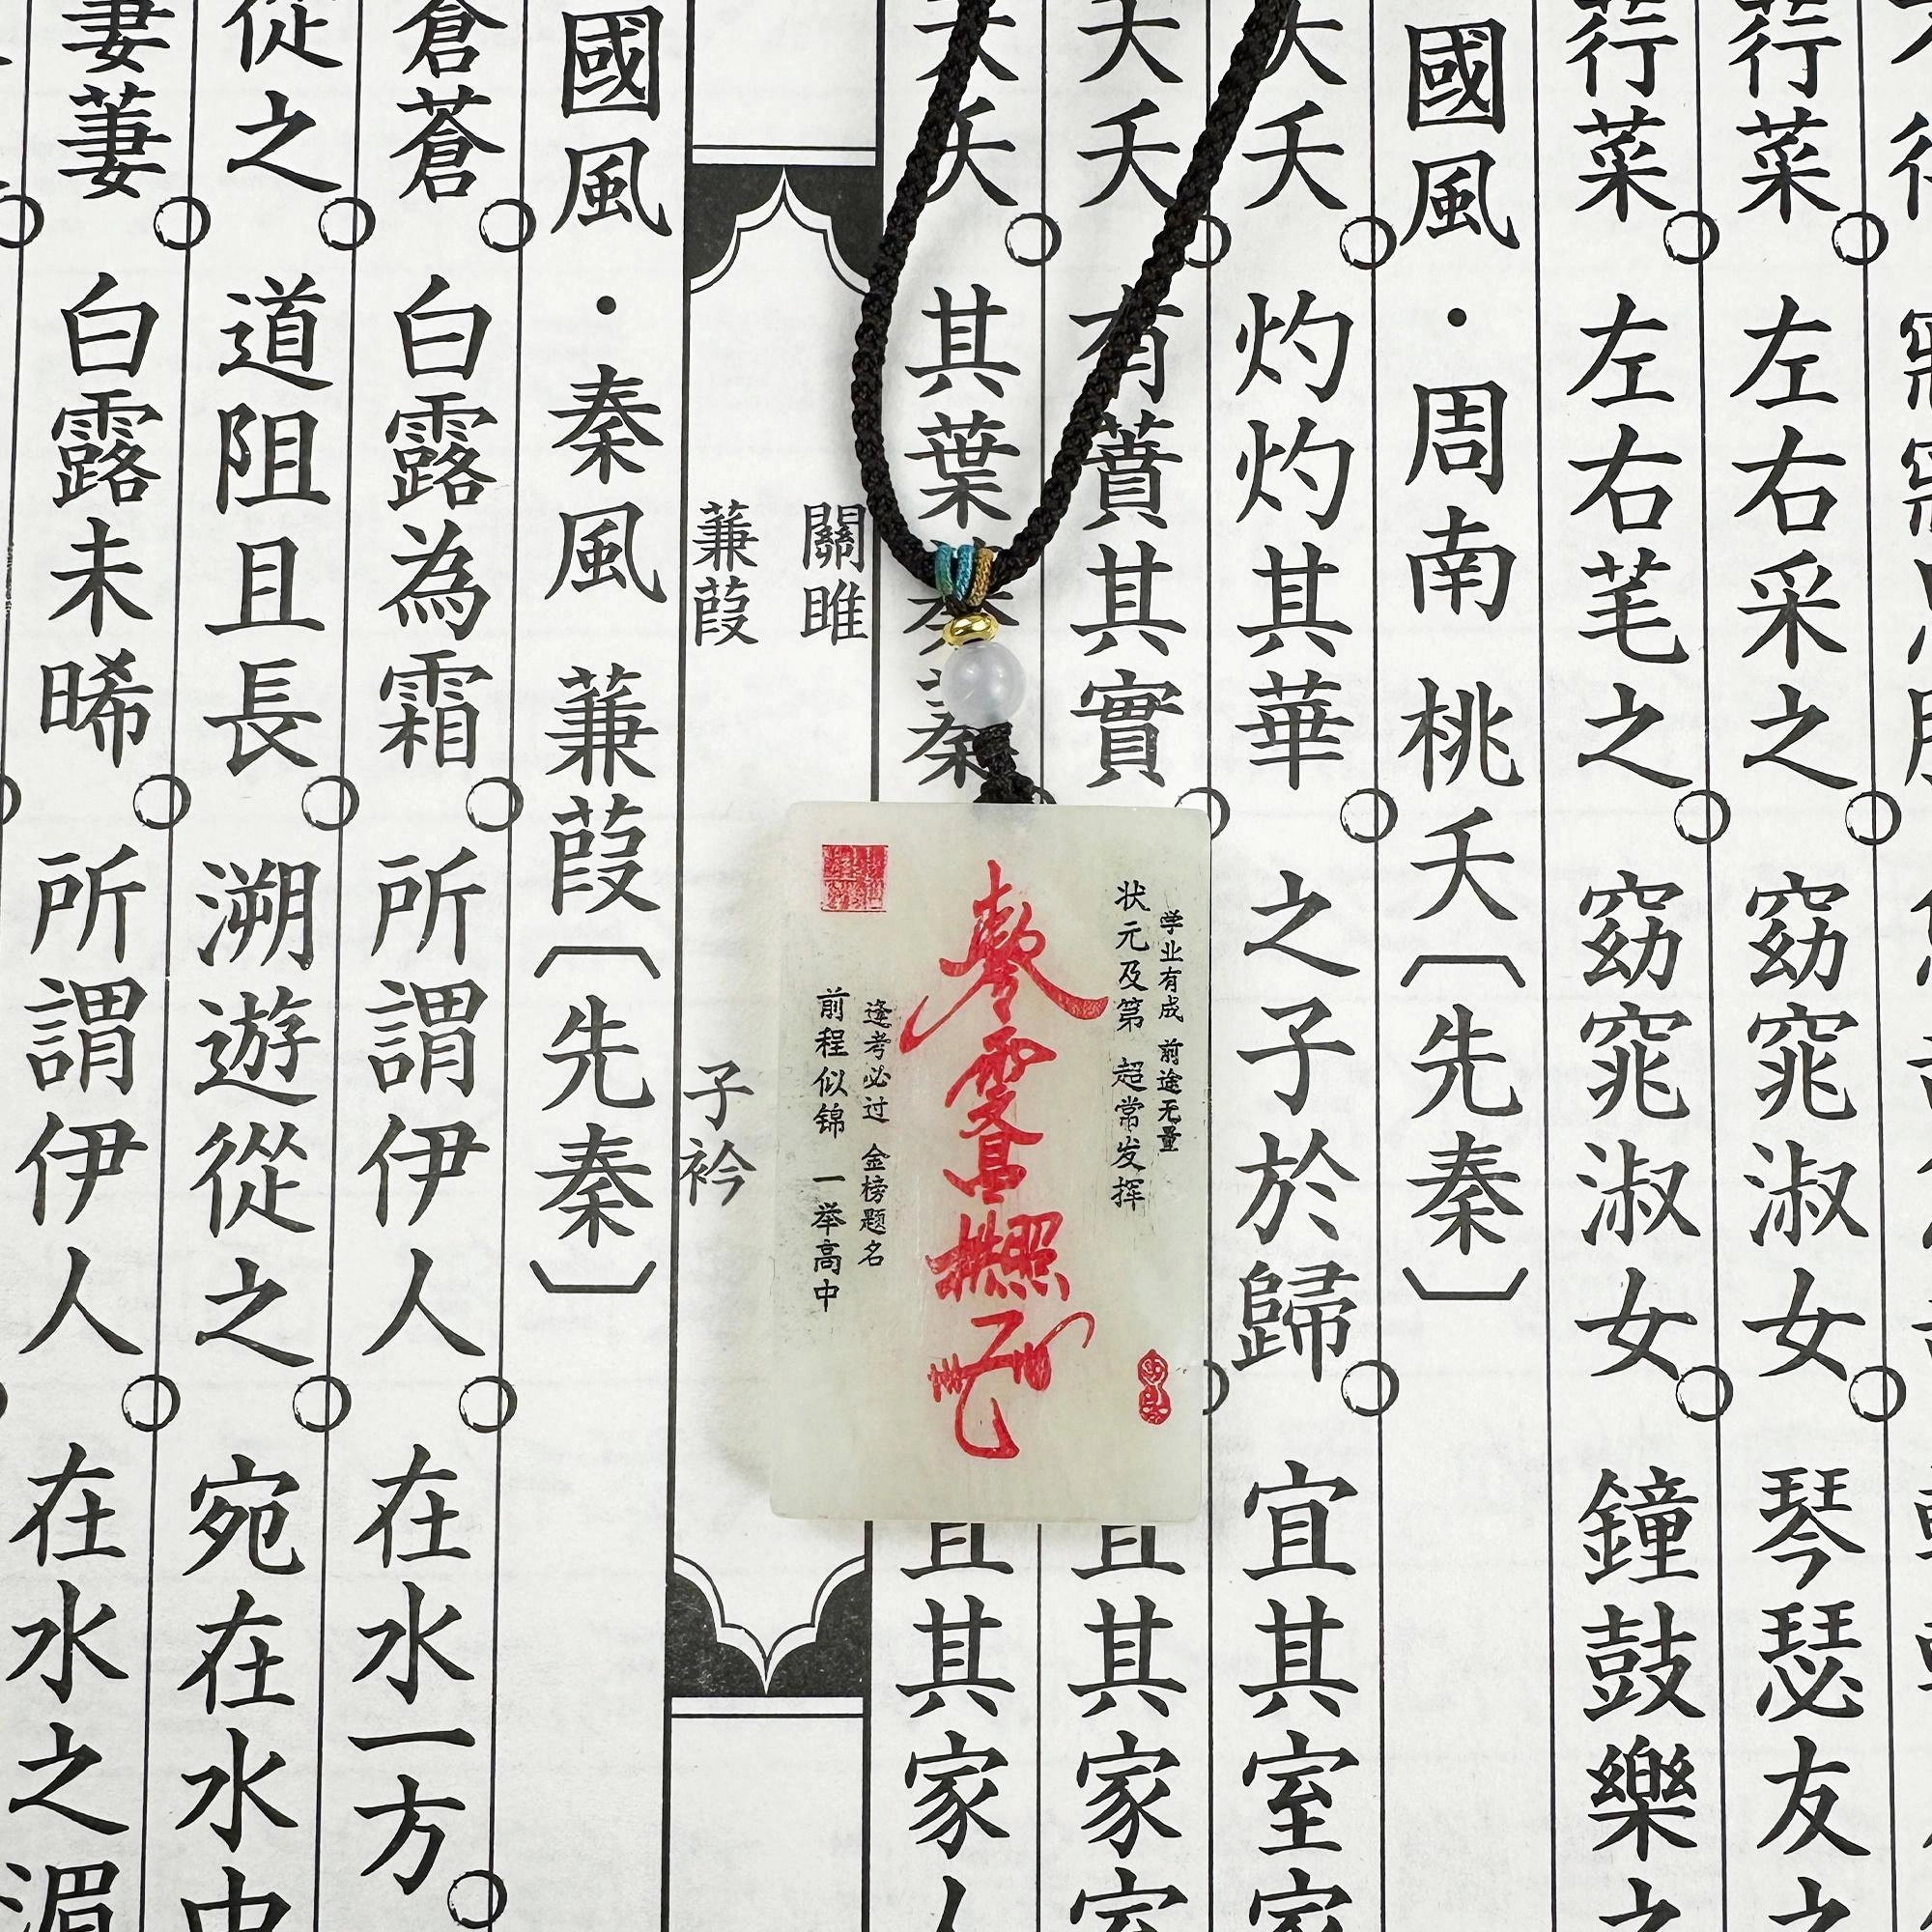 荇菜。左右采之。窈窕淑女。琴瑟友之
荇菜。左右芼之。窈窕淑女。鐘鼓樂之
國風·周南 桃夭〔先秦〕
夭夭。灼灼其華。之子於歸。宜其室家
夭夭。有蕡其實。宜其家室
夭夭。其葉蓁蓁。宜其家人
關雎
蒹葭
子衿
國風·秦風 蒹葭〔先秦〕
蒼蒼。白露為霜。所謂伊人。在水一方。
從之。道阻且長。溯遊從之。宛在水中
萋萋。白露未晞。所謂伊人。在水之湄
学业有成 前途无量
状元及第 超常发挥
逢考必过 金榜题名
前程似锦 一举高中